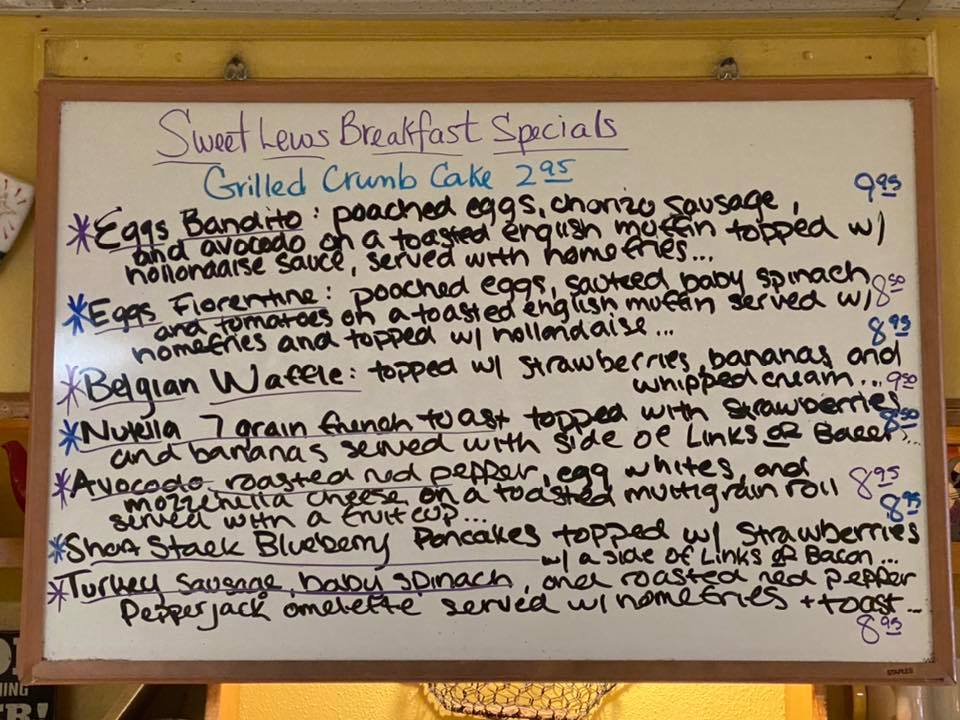 Sweet Lews Breakfast Specials
Grilled Crumb Cake 2 95
9 95
*Eggs Bandito: poached eggs, chorizo sausage,
and avocado on a toasted english muffin topped w/
hollondaise sauce, served with homefries...
*Eggs Florentine: poached eggs, sauteed baby spinach 8 50
and tomatoes on a toasted english muffin served w/
homefries and topped w/ hollondaise... 8 95
*Belgian Waffle: topped w/ strawberries, bananas and
whipped cream... 9 50
*Nutella 7 grain french toast topped with strawberries
and bananas served with side of Links or Bacon... 8 50
*Avocado roasted red pepper, egg whites, and
mozzerella cheese on a toasted multigrain roll 8 95
served with a fruit cup... 8 95
*Short Stack Blueberry Pancakes topped w/ Strawberries
w/ a side of Links or Bacon...
*Turkey sausage, baby spinach, and roasted red pepper
Pepperjack omelette served w/ homefries + toast...
8 95
STAPLES